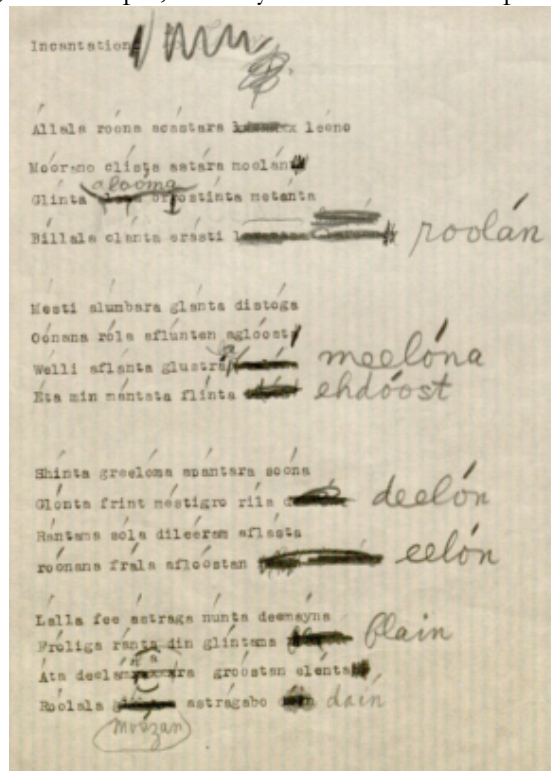 Incantation
Állala roóna acástara leóno
Moórano clísta astára moolán
Glinta alooma orpostínta metánta
Billala clánta erásti roolán
Mesti alumbara glánta distoga
Oónana róla aflúnten aglóost
Wélli aflánta glustra meelóna
Éta min mántata flínta ehdóost
Shínta greelóma apántara soóna
Glónta frint méstigro ríla deelón
Rántama sóla dileéram aflásta
roónana frála aflóostan eelón
Lálla fee ástraga núnta deemáyna
Fróliga ránta din glíntama flain
Áta groóstan elénta
Roólala moózan astrágabo daín